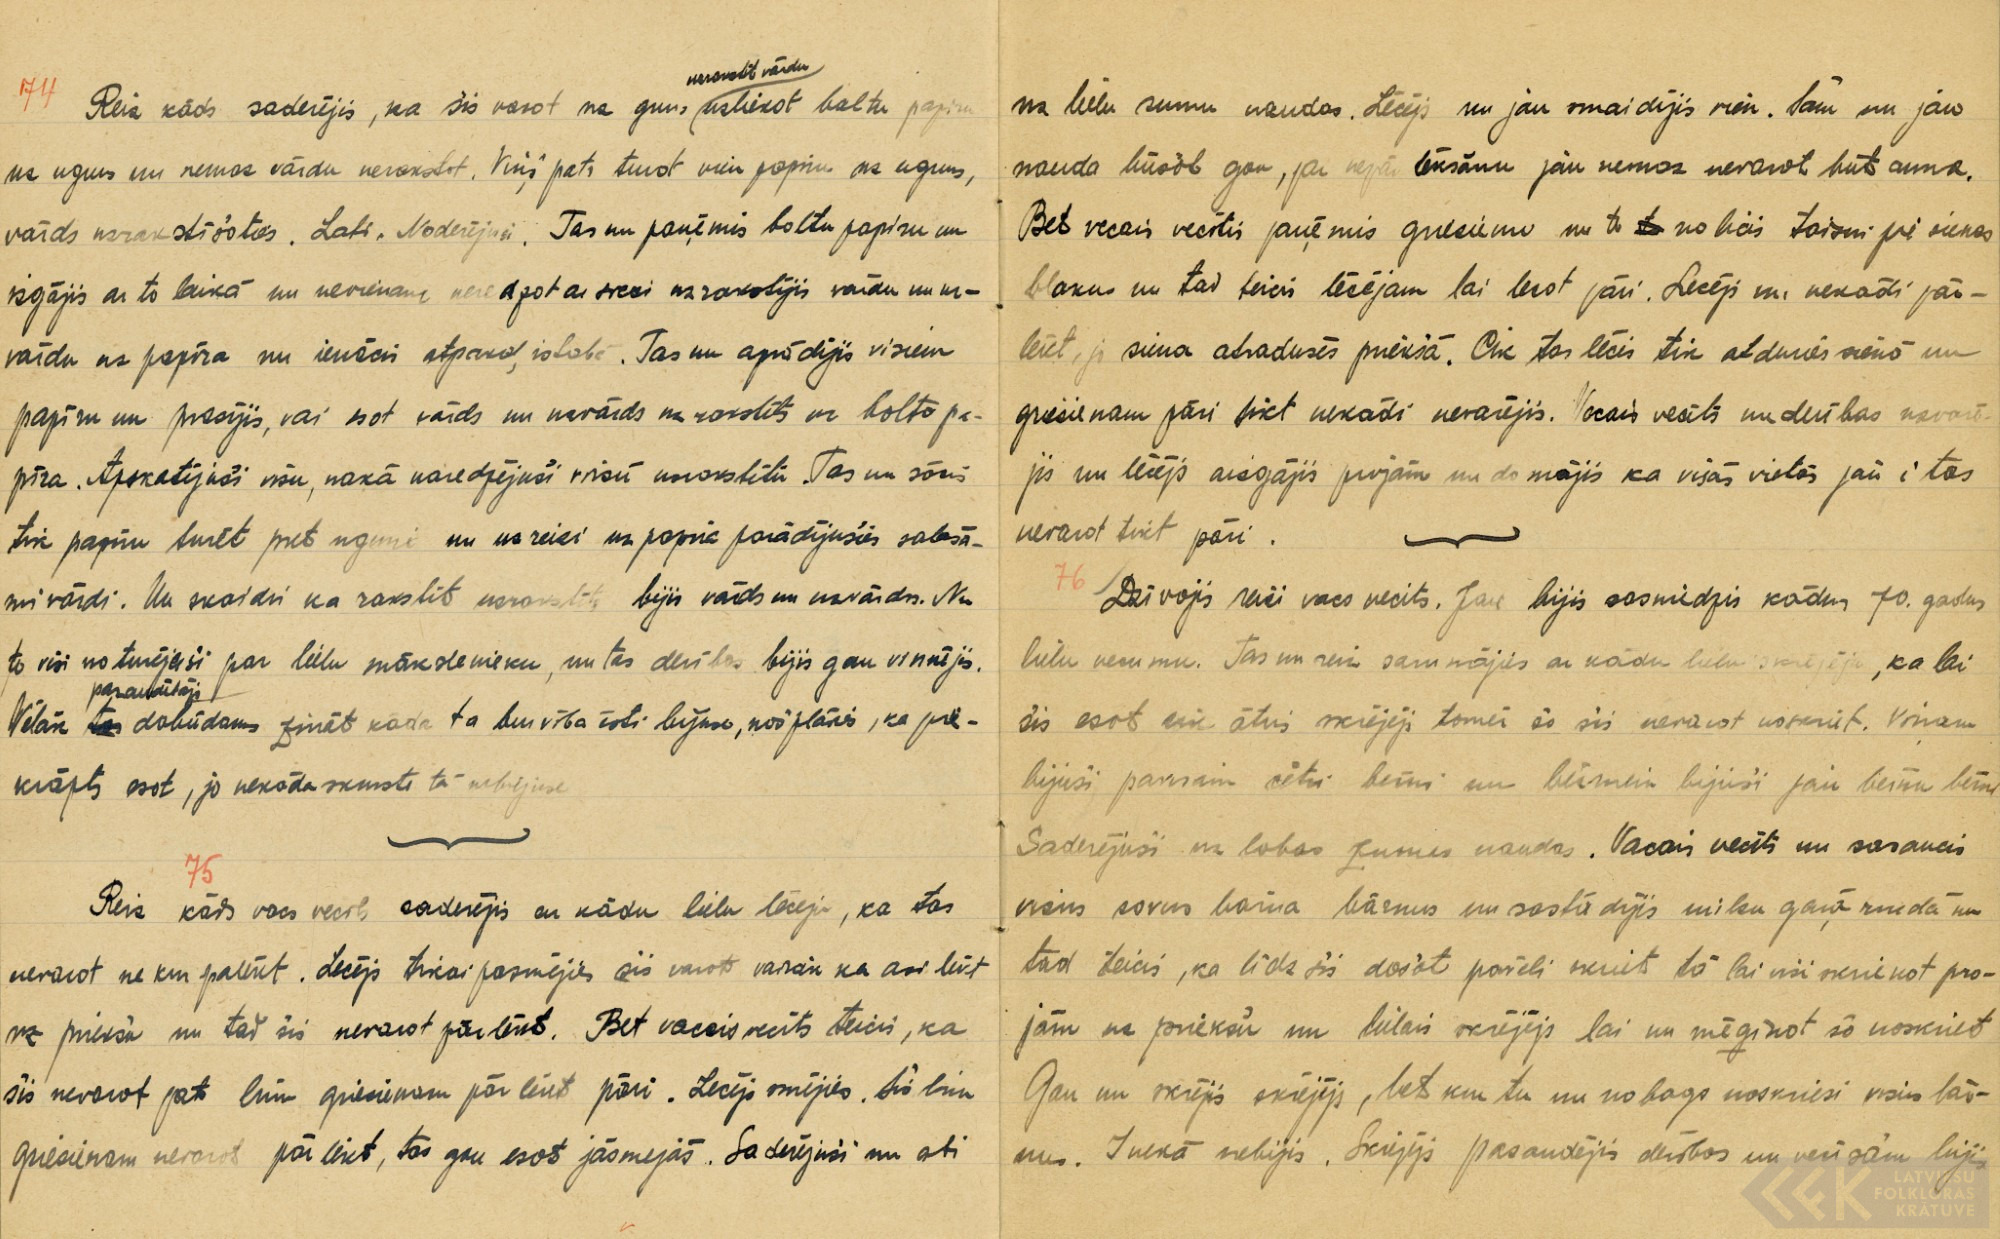 74
uzrakstīt vārdu
Reiz kāds saderējis, ka šis varot uz guns uzliekot baltu papīru
uz uguns un nemaz vārdu nerakstot. Viņš pats turot vien papīru uz uguns,
vārds uzrakstīsoties. Labi. Noderējuši. Tas nu paņēmis baltu papīru un
izgājis ar to laikā un nevienam neredzot ar sveci uzrakstījis vārdu un uz-
vārdu uz papīra un ienācis atpakaļ istabā. Tas nu aprādījis visiem
papīru un prasījis, vai esot vārds un uzvārds uzrakstīts uz baltā pa-
pīra. Apskatījuši visu, nekā naredzējuši virsū uzrakstītu. Tas nu sācis
tik papīru turēt pret uguni un uzreizi uz papīra parādījušies salasā-
mi vārdi. Un skaidri ka rakstīt uzrakstīts bijis vārds un uzvārds. Nu
to visi noturējuši par lielu mākslenieku, un tas derības bijis gan vinnējis.
pazaudētājs
Vēlāk tas dabūdams zināt kāda ta burvība īsti bijuse, nošpļāvies, ka pie-
krāpts esot, jo nekāda skunste tā nebijuse
75
Reiz kāds vacs vecīts saderējis ar kādu lielu lēcēju, ka tas
nevarot ne kur pārlēkt. Lecējs tikai pasmējies šis varot vairāk ka asi lēkt
uz priekšu un tad šis nevarot pārlēkt. Bet vacais vecīts teicis, ka
šis nevarot pat līm griezienam pār lēkt pāri. Lecējs smējies. šis līm
griezienam nevarot pār lēkt, tas gan esot jāsmejās. Saderējuši nu abi
uz lielu summu naudas. Lēcējs nu jau smaidījis vien. tām nu jau
nauda būšot gan, jo nepār lēkšanu jau nemaz nevarot būt
Bet vecais vecītis paņēmis griezienu un to to nolicis taisni pie sienas
blakus un tad teicis lēcējam lai lecot pāri. Lecējs nu nekādi pār-
lēkt, jo siena atradusēs priekšā. Cik tas lēcis tik atduries sienā un
griezienam pāri tikt nekādi nevarējis. Vecais vecīts nu derības uzvarē-
jis un lēcējs aizgājis projām un domājis ka visās vietās jau i tas
nevarot tikt pāri.
76
Dzīvojis reiži vacs vecīts. Jau bijis sasniedzis kādus 70. gadus
lielu vecumu. Tas nu reiz sarunājies ar kādu lielu skrējēju, ka lai
šis esot cik ātrs skrējējs tomēr šo šis nevarot noskriet. Viņam
bijuši pavisam četri bērni un bērniem bijuši jau bērnu bērni
Saderējuši uz labas zummas naudas. Vacais vecīts nu sasaucis
visus savus bērna bērnus un sastādījis vienu garā rindā un
tad teicis, ka līdz šis došot pavēli skriet tā lai visi skrienot pro-
jām uz priekšu un lielais skrējējs lai nu mēģinot šo noskriet
Gan nu skrējis skrējējs, bet kur tu nu nabags noskriesi visus bēr-
nus. I nekā nebijis. Skrējējs pazaudējis derības un bijis
LATVIEŠU
FOLKLORAS
KRĀTUVE